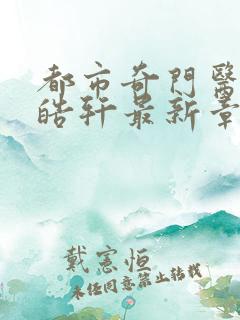 都市奇門醫
皓轩最新章
戴憲恒
未任同意禁止转载